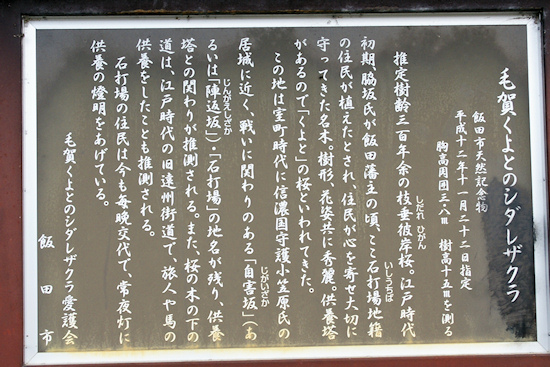 毛賀くよとのシダレザクラ
飯田市天然記念物
平成十二年十一月二十二日指定
胸高周囲三・八m　樹高十五mを測る
推定樹齢三百年余の枝垂彼岸桜。江戸時代
しだれ ひがん
初期、脇坂氏が飯田藩主の頃、ここ石打場地籍
いしうちば
の住民が植えたとされ、住民が心を寄せ大切に
守ってきた名木。樹形、花姿共に秀麗。供養塔
があるので「くよと」の桜といわれてきた。
この地は室町時代に信濃国守護小笠原氏の
居城に近く、戦いに関わりのある「自害坂」（あ
じがいざか
るいは「陣返坂」）・「石打場」の地名が残り、供養
じんがえしざか
塔との関わりが推測される。また、桜の木の下の
道は、江戸時代の旧遠州街道で、旅人や馬の
供養をしたことも推測される。
石打場の住民は今も毎晩交代で、常夜灯に
供養の燈明をあげている。
毛賀くよとのシダレザクラ愛護会
飯田市